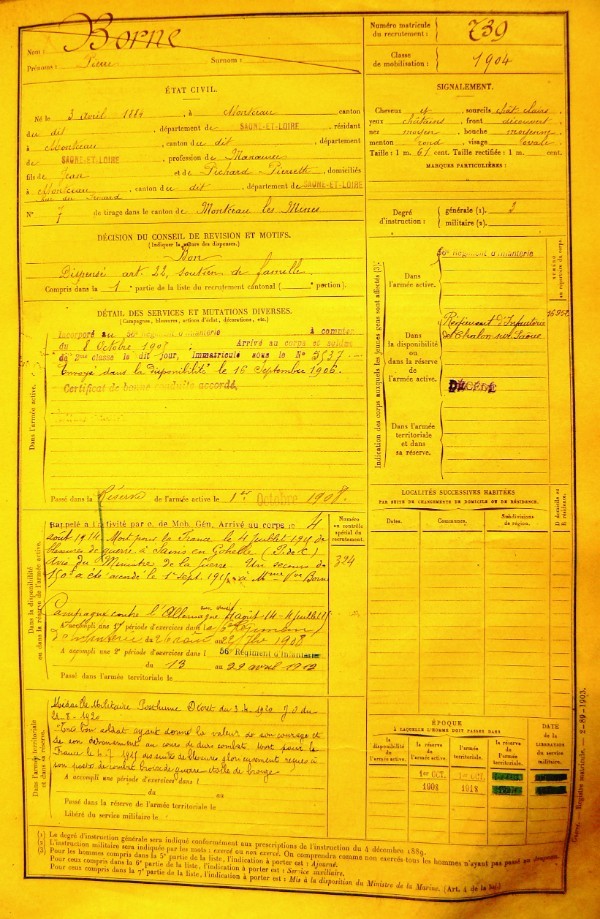 Nom : Borne
Prénoms : Pierre Surnoms :
Numéro matricule du recrutement : 739
Classe de mobilisation : 1904
ÉTAT CIVIL.
Né le 3 avril 1884, à Montceau canton
du dit, département de SAONE-ET-LOIRE, résidant
à Montceau, canton du dit, département
de SAONE-ET-LOIRE, profession de Manœuvre
fils de Jean et de Pichard Pierrette, domiciliés
à Montceau, canton du dit, département de SAONE-ET-LOIRE
N° 7 de tirage dans le canton de Montceau les Mines
SIGNALEMENT.
Cheveux et sourcils chât clairs
yeux châtains, front découvert
nez moyen, bouche moyenne
menton rond, visage ovale
Taille : 1 m. 61 cent. Taille rectifiée : 1 m. cent.
MARQUES PARTICULIÈRES :
Degré d'instruction : générale (1). 3
militaire (2).
DÉCISION DU CONSEIL DE REVISION ET MOTIFS.
(Indiquer la nature des dispenses.)
Bon
Dispensé art. 22, soutien de famille
Compris dans la 1e partie de la liste du recrutement cantonal ( e portion).
DÉTAIL DES SERVICES ET MUTATIONS DIVERSES.
(Campagnes, blessures, actions d'éclat, décorations, etc.)
Incorporé au 56e Régiment d'Infanterie à compter
du 8 Octobre 1905. Arrivé au corps et soldat
de 2me classe le dit jour, immatriculé sous le N° 3537
Envoyé dans la disponibilité le 16 Septembre 1906
Certificat de bonne conduite accordé.
Dans l'armée active.
Passé dans la Réserve de l'armée active le 1er Octobre 1908.
Indication des corps auxquels les jeunes gens sont affectés (3).
NUMÉRO au répertoire du corps.
Dans l'armée active.
56e Régiment d'Infanterie
Dans la disponibilité ou dans la réserve de l'armée active.
Régiment d'Infanterie
de Chalon sur Saône
DÉCÉDÉ
Dans l'armée territoriale et dans sa réserve.
Dans la disponibilité ou dans la réserve de l'armée active.
Rappelé à l'activité par o. de Mob. Gén. Arrivé au corps le 4
août 1914. Mort pour la France le 4 juillet 1915 de
blessures de guerre à Sains en Gohelle (P. de C)
Avis du Ministre de la Guerre. Un secours de
150f a été accordé le 1er Sept. 1915 à Mme Vve Borne
Campagne contre l'Allemagne 4 août 14 - 4 juillet 15
A accompli une 1re période d'exercices dans le
d'Infanterie du 26 août au 22 7bre 1908
A accompli une 2e période d'exercices dans le 56e Régiment d'Infanterie
du 13 au 29 avril 1912
Passé dans l'armée territoriale le
Numéro au contrôle spécial du recrutement.
324
LOCALITÉS SUCCESSIVES HABITÉES
PAR SUITE DE CHANGEMENTS DE DOMICILE OU DE RÉSIDENCE.
Dates.
Communes.
Subdivisions de région.
D domicile ou R résidence.
Dans l'armée territoriale et dans sa réserve.
Médaille Militaire Posthume Décret du J.O du
28-8-1920
Très bon soldat ayant donné la valeur de son courage et
de son dévouement au cours de durs combats. Mort pour la
France le 4-7-1915 des suites de blessures glorieusement reçues à
son poste de combat. Croix de guerre étoile de bronze
A accompli une période d'exercices dans l
du au
Passé dans la réserve de l'armée territoriale le
Libéré du service militaire le
ÉPOQUE
A LAQUELLE L'HOMME DOIT PASSER DANS
la disponibilité de l'armée active.
la réserve de l'armée active.
l'armée territoriale.
la réserve de l'armée territoriale.
DATE de la LIBÉRATION du service militaire.
1er OCT. 1er OCT.
1908 1918
Registre matricule. — 2-89-1903.
(1) Le degré d'instruction générale sera indiqué conformément aux prescriptions de l'instruction du 4 décembre 1889.
(2) L'instruction militaire sera indiquée par les mots : exercé ou non exercé. On comprendra comme non exercés tous les hommes n'ayant pas passé au drapeau.
(3) Pour les hommes compris dans la 5e partie de la liste, l'indication à porter est : Ajourné.
Pour ceux compris dans la 6e partie de la liste, l'indication à porter est : Service auxiliaire.
Pour ceux compris dans la 7e partie de la liste, l'indication à porter est : Mis à la disposition du Ministre de la Marine. (Art. 4 de la loi.)